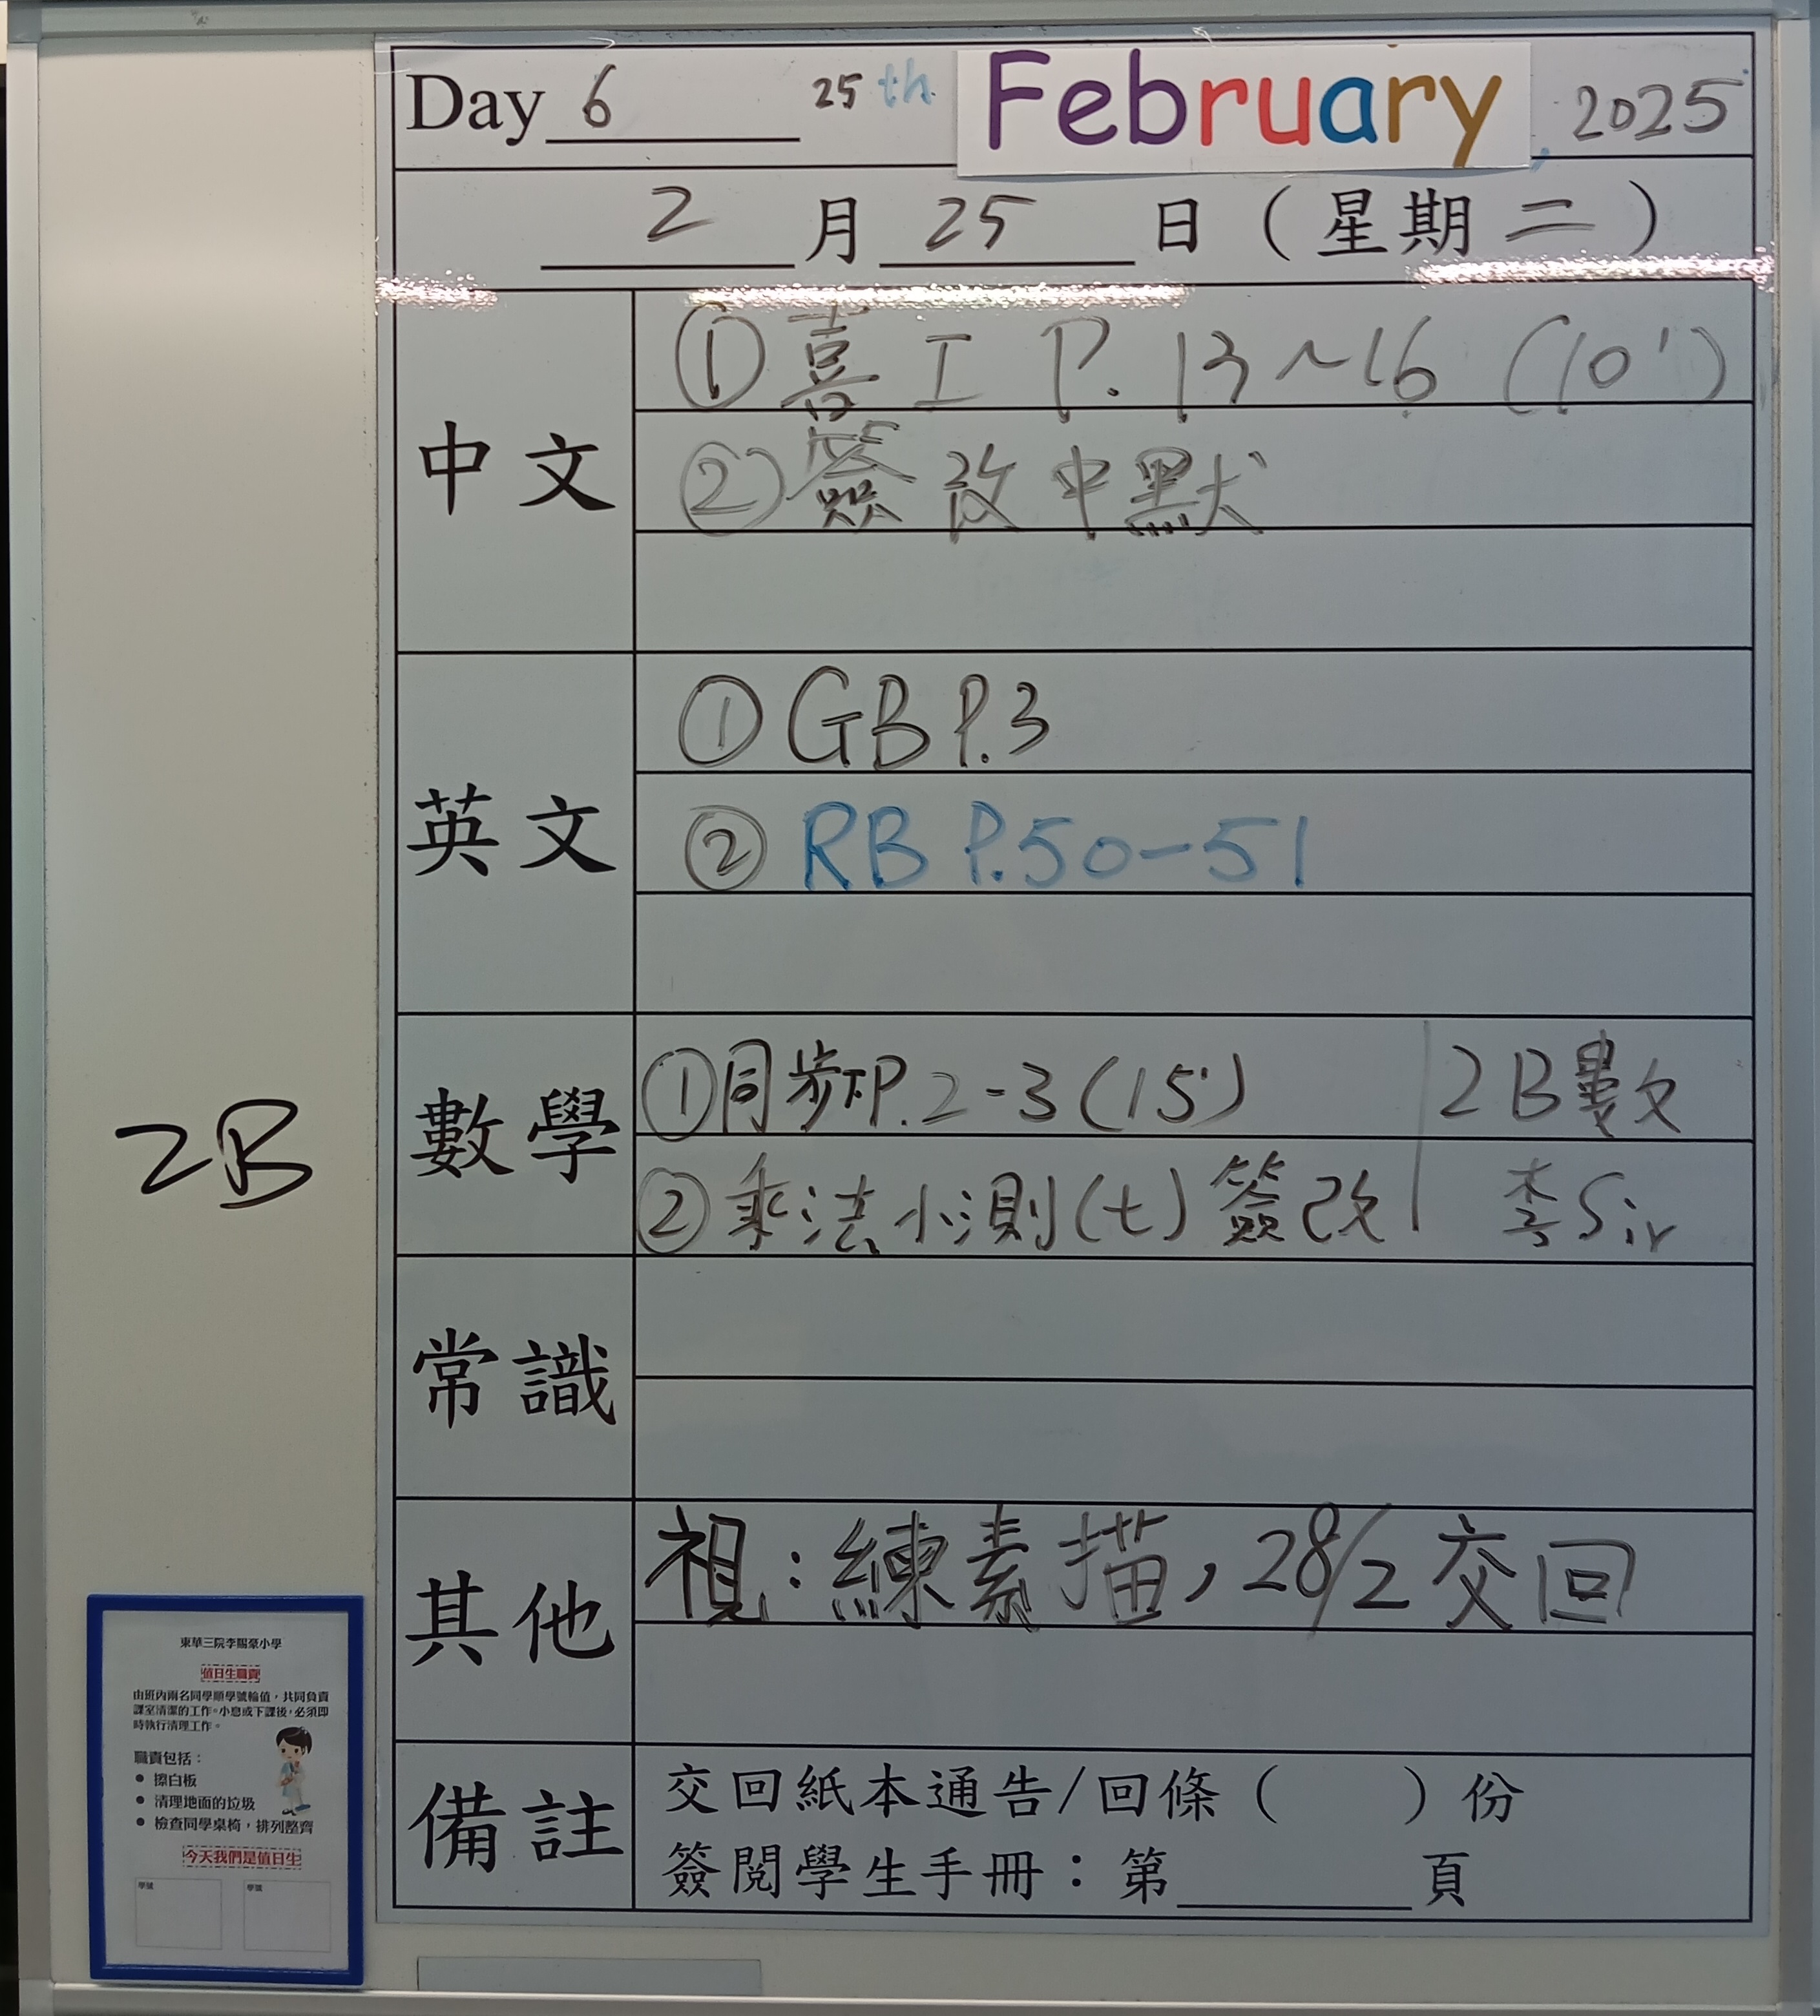 Day 6 25th February, 2025
2 月 25 日 ( 星期 二 )
中文
① 喜 工 P. 13~16 (10')
② 簽改中默
英文
① GB P.3
② RB P.50-51
數學
① 同步下P.2-3 (15') 2B數
② 乘法小測(七) 簽改 李Sir
2B
常識
其他
視：練素描，28/2 交回
備註
交回紙本通告/回條（ ）份
簽閱學生手冊：第 頁
東華三院李賜豪小學
值日生職責
由班內兩名同學順學號輪值，共同負責
課室清潔的工作。小息或下課後，必須即
時執行清理工作。
職責包括：
● 擦白板
● 清理地面的垃圾
● 檢查同學桌椅，排列整齊
今天我們是值日生
學號 學號